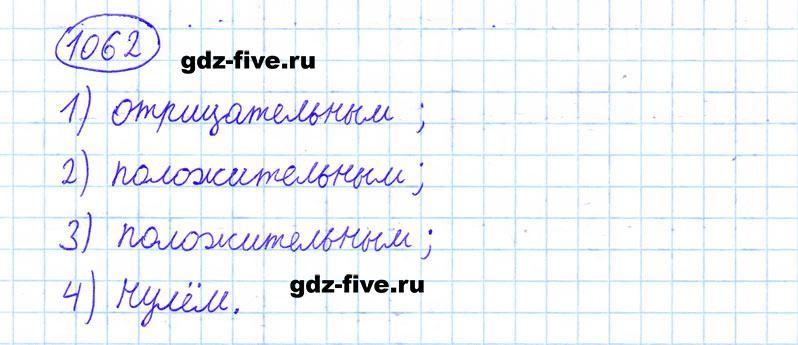 1062
gdz-five.ru
1) отрицательным;
2) положительным;
3) положительным;
4) нулём.
gdz-five.ru